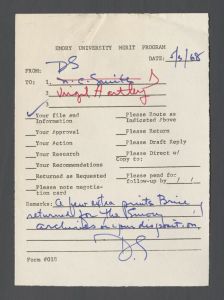 EMORY UNIVERSITY MERIT PROGRAM
DATE: 5/3/68
FROM:
DS
TO: 1. N. C. Smith
2. Virgil Hartley
3.
✓ Your file and Information
Please Route as Indicated Above
Your Approval
Please Return
Your Action
Please Draft Reply
Your Research
Please Direct w/ Copy to:
Your Recommendations
Returned as Requested
Please send for follow-up by / /
Please note negotiation card
Remarks: A few extra prints Brice
returned for the Emory
archives or your disposition.
D.S
Form #010